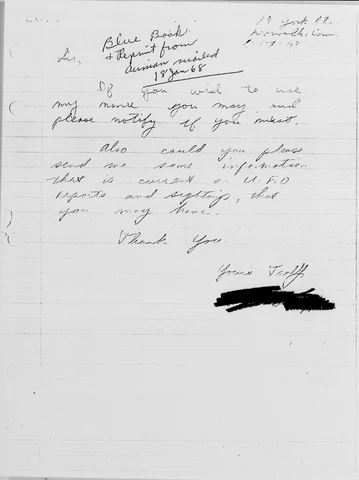 Blue Book
+ Reprint from
Airman mailed
18 Jan 68
Sir,
If you wish to use
my name you may and
please notify if you must.
Also could you please
send me some information
that is current on U.F.O
reports and sightings, that
you may have.
Thank you.
Yours